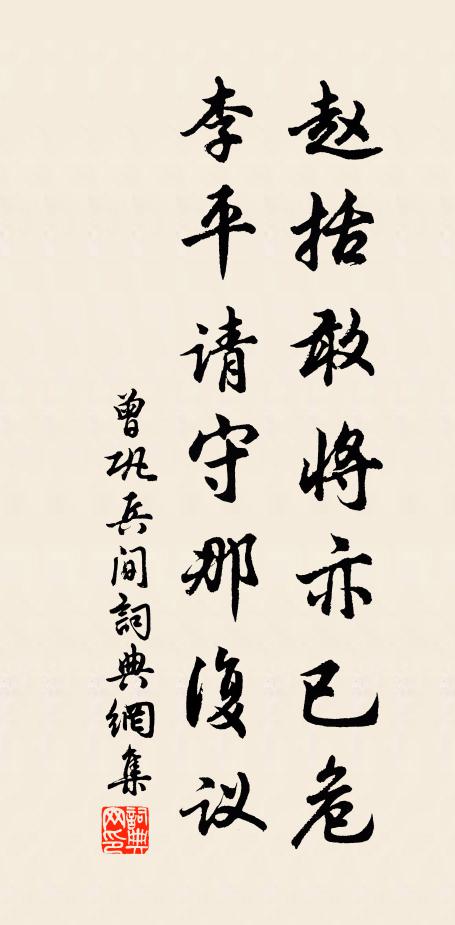 赵括敢将亦已危
李平请守那復议
曾巩兵间詞典網集
詞典网印